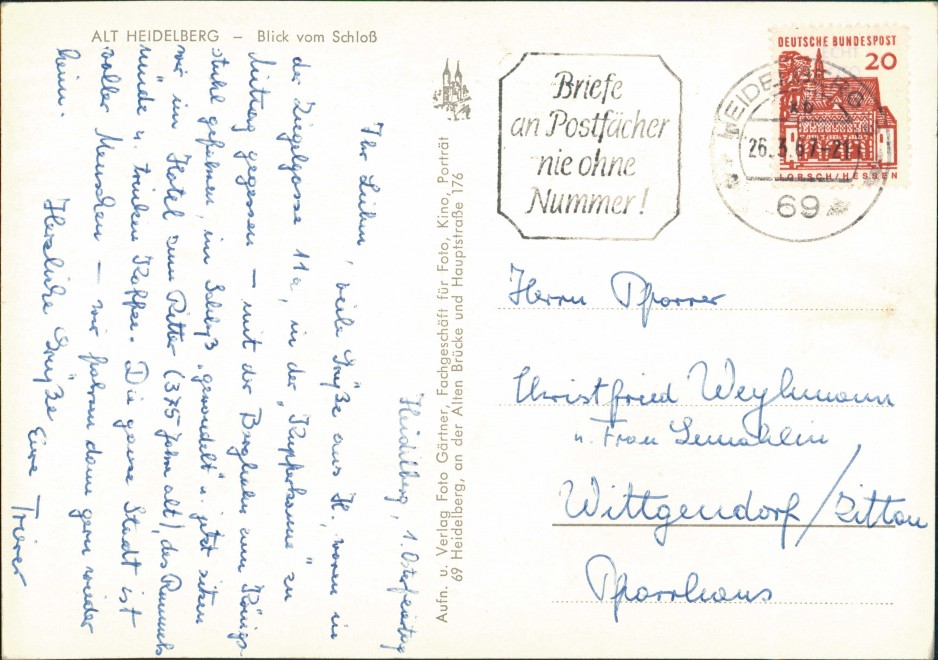 ALT HEIDELBERG – Blick vom Schloß
Heidelberg, 1. Osterfeiertag
Ihr Lieben, viele Grüße aus H., waren in
der Ziegelgasse 11a, in der „Kupferkanne" zu
Mittag gegessen – mit der Bergbahn zum Königs-
stuhl gefahren, im Schloß „gewandelt" u. jetzt sitzen
wir im Hotel zum Ritter (375 Jahre alt), des Rummels
müde u. trinken Kaffee. Die ganze Stadt ist
voller Menschen – wir fahren dann gern wieder
heim.
Herzliche Grüße Eure Trierer
Aufn. u. Verlag Foto Gärtner, Fachgeschäft für Foto, Kino, Porträt
69 Heidelberg, an der Alten Brücke und Hauptstraße 176
Briefe
an Postfächer
nie ohne
Nummer!
HEIDELBERG
26.3.67-21
69
DEUTSCHE BUNDESPOST
20
LORSCH/HESSEN
Herrn Pfarrer
Christfried Weyhmann
u. Frau Gemahlin
Wittgendorf/Zittau
Pfarrhaus